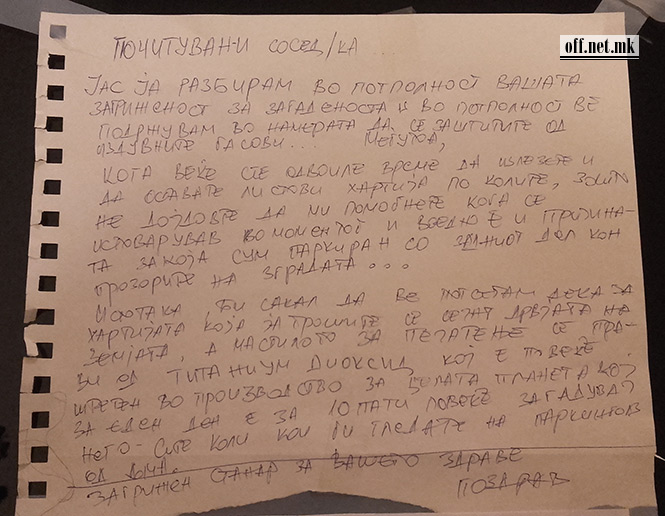 off.net.mk
ПОЧИТУВАН-И СОСЕД/КА ...
ЈАС ЈА РАЗБИРАМ ВО ПОТПОЛНОСТ ВАШАТА
ЗАГРИЖЕНОСТ ЗА ЗАГАДЕНОСТА И ВО ПОТПОЛНОСТ ВЕ
ПОДРЖУВАМ ВО НАМЕРАТА ДА СЕ ЗАШТИТИТЕ ОД
ИЗДУВНИТЕ ГАСОВИ... МЕЃУТОА,
КОГА ВЕЌЕ СТЕ ОДВОИЛЕ ВРЕМЕ ДА ИЗЛЕЗЕТЕ И
ДА ОСТАВАТЕ ЛИСТОВИ ХАРТИЈА ПО КОЛИТЕ, ЗОШТО
НЕ ДОЈДОВТЕ ДА МИ ПОМОГНЕТЕ КОГА СЕ
ИСТОВАРУВАВ ВО МОМЕНТОТ И ВОЕДНО Е И ПРИЧИНА-
ТА ЗА КОЈА СУМ ПАРКИРАН СО ЗАДНИОТ ДЕЛ КОН
ПРОЗОРИТЕ НА ЗГРАДАТА ...
ИСТОТАКА, БИ САКАЛ ДА ВЕ ПОТСЕТАМ ДЕКА ЗА
ХАРТИЈАТА КОЈА ЈА ТРОШИТЕ СЕ СЕЧАТ ДРВЈАТА НА
ЗЕМЈАТА, А МАСТИЛОТО ЗА ПЕЧАТЕЊЕ СЕ ПРА-
ВИ ОД ТИТАНИУМ ДИОКСИД КОЈ Е ПОВЕЌЕ
ШТЕТЕН ВО ПРОИЗВОДСТВО ЗА ЦЕЛАТА ПЛАНЕТА КОЈ
ЗА ЕДЕН ДЕН Е ЗА 10 ПАТИ ПОВЕЌЕ ЗАГАДУВАЧ
НЕГО СИТЕ КОЛИ КОИ ГИ ГЛЕДАТЕ НА ПАРКИНГОВ
ОД
ЗАГРИЖЕН СТАНАР ЗА ВАШЕТО ЗДРАВЈЕ
ПОЗДРАВ